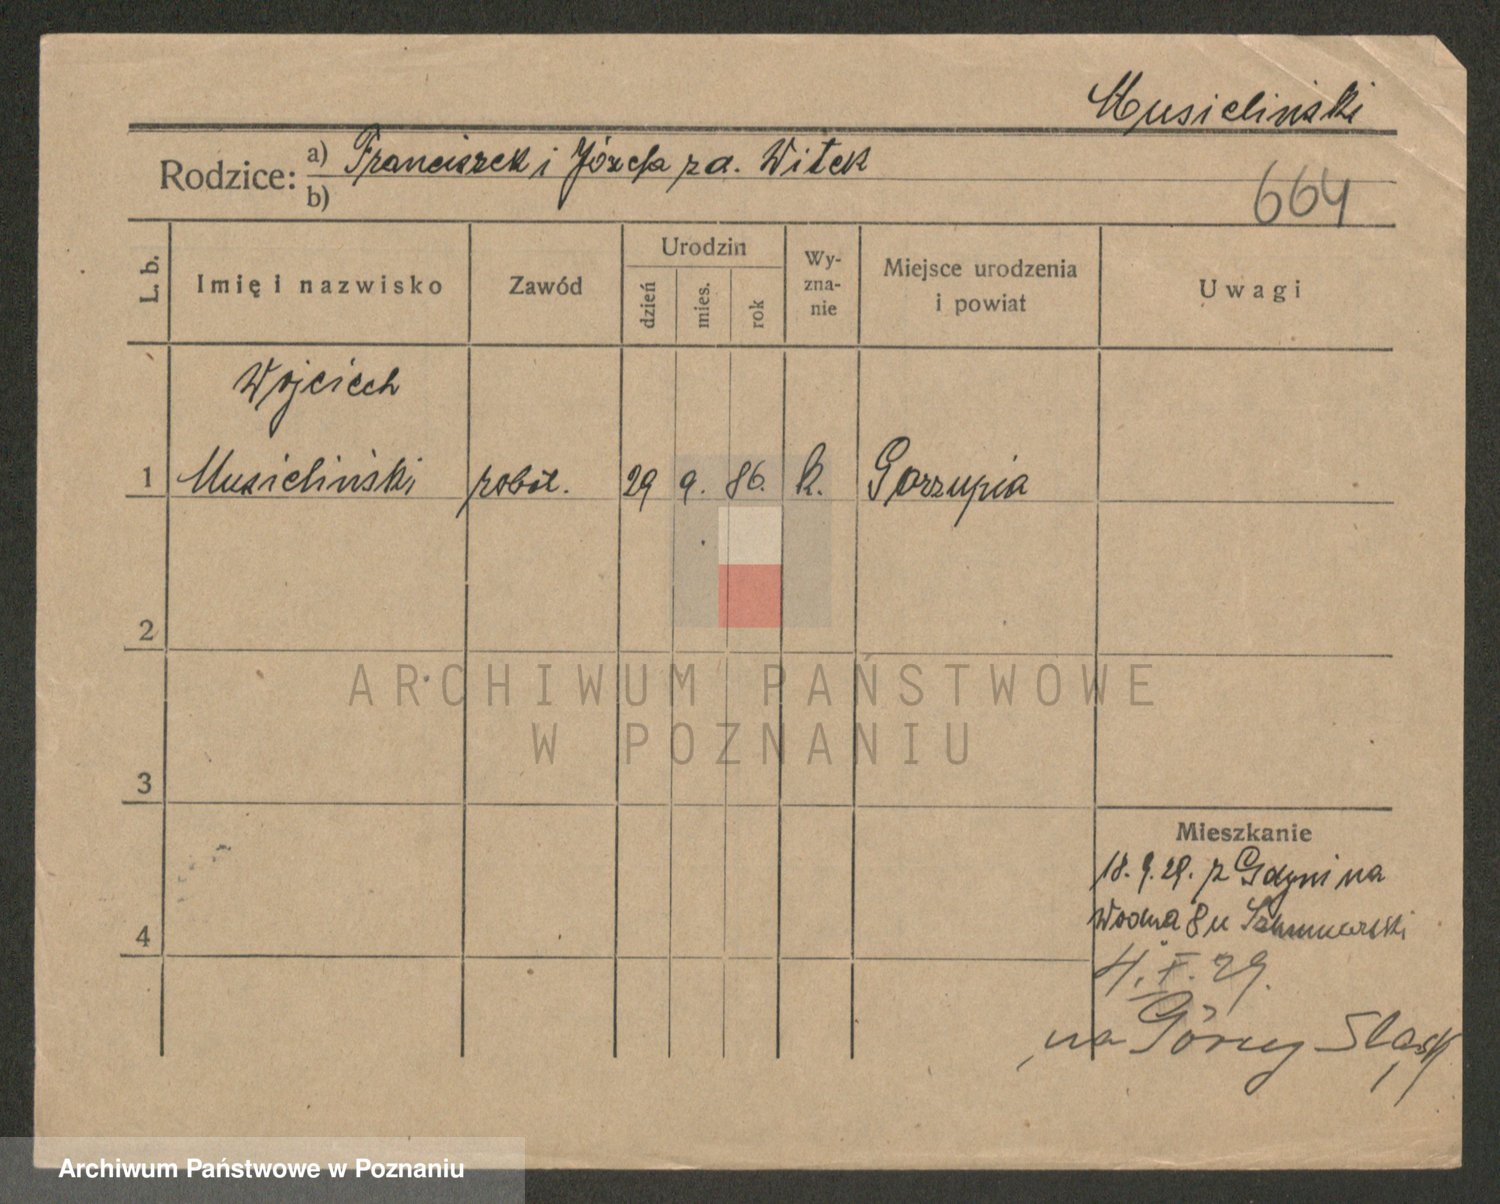 Musieliński
Rodzice: a) Franciszek i Józefa z d. Witek
b)
664
L. b.
Imię i nazwisko
Zawód
Urodzin
dzień
mies.
rok
Wy-
zna-
nie
Miejsce urodzenia
i powiat
Uwagi
Wojciech
1 Musieliński robot. 29 9. 86. k. Gorzupia
2
ARCHIWUM PAŃSTWOWE
W POZNANIU
3
Mieszkanie
18. 9. 29. z Gdyni na
Wodna 8 u
4
4. X. 29.
na Górny Śląsk
Archiwum Państwowe w Poznaniu